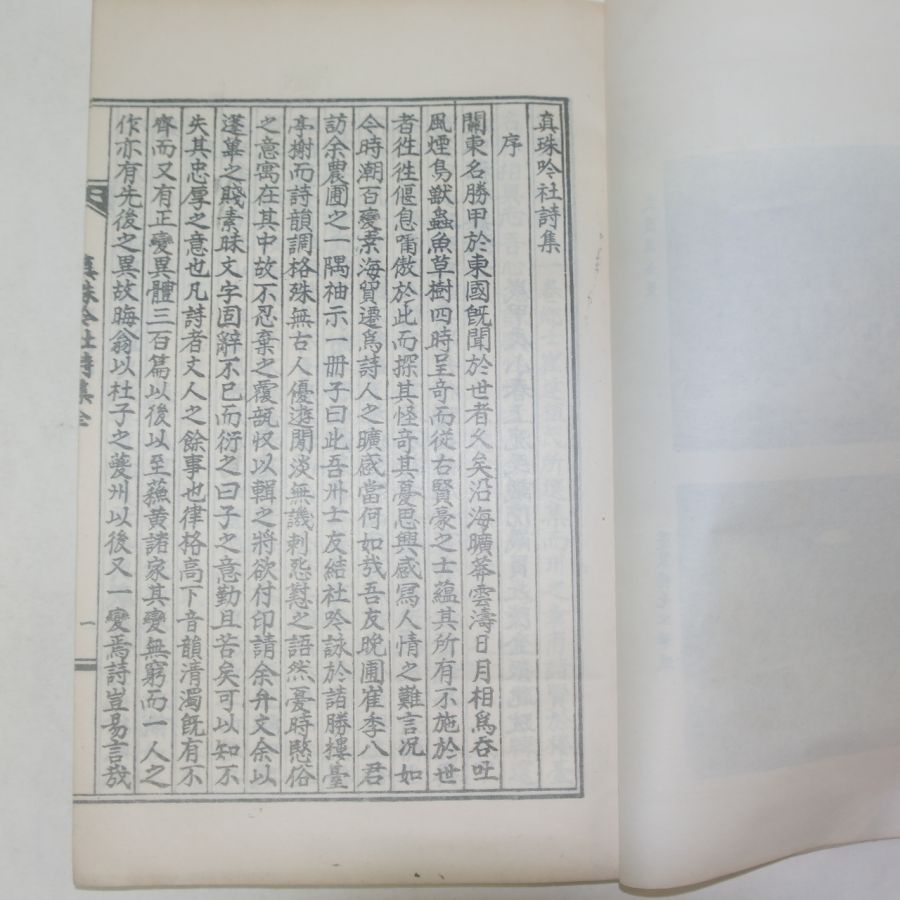 真珠吟社詩集
序
關東名勝甲於東國旣聞於世者久矣沿海曠莽雲濤日月相爲吞吐
風煙鳥獸蟲魚草樹四時呈奇而從古賢豪之士蘊其所有不施於世
者徃徃偃息嘯傲於此而探其怪奇其憂思興感冩人情之難言况如
今時潮百變桒海貿遷爲詩人之曠感當何如哉吾友晩圃崔季八君
訪余農圃之一隅袖示一册子曰此吾卅士友結社吟詠於諸勝摟臺
亭榭而詩韻調格殊無古人優遊閒淡無譏刺怨懟之語然憂時愍俗
之意寓在其中故不忍棄之覆瓿收以輯之將欲付印請余弁文余以
蓬蓽之賤素昧文字固辭不已而衍之曰子之意勤且苦矣可以知不
失其忠厚之意也凡詩者文人之餘事也律格高下音韻淸濁旣有不
齊而又有正變異體三百篇以後以至蘓黃諸家其變無窮而一人之
作亦有先後之異故晦翁以杜子之夔州以後又一變焉詩豈易言哉
真珠吟社詩集全
一